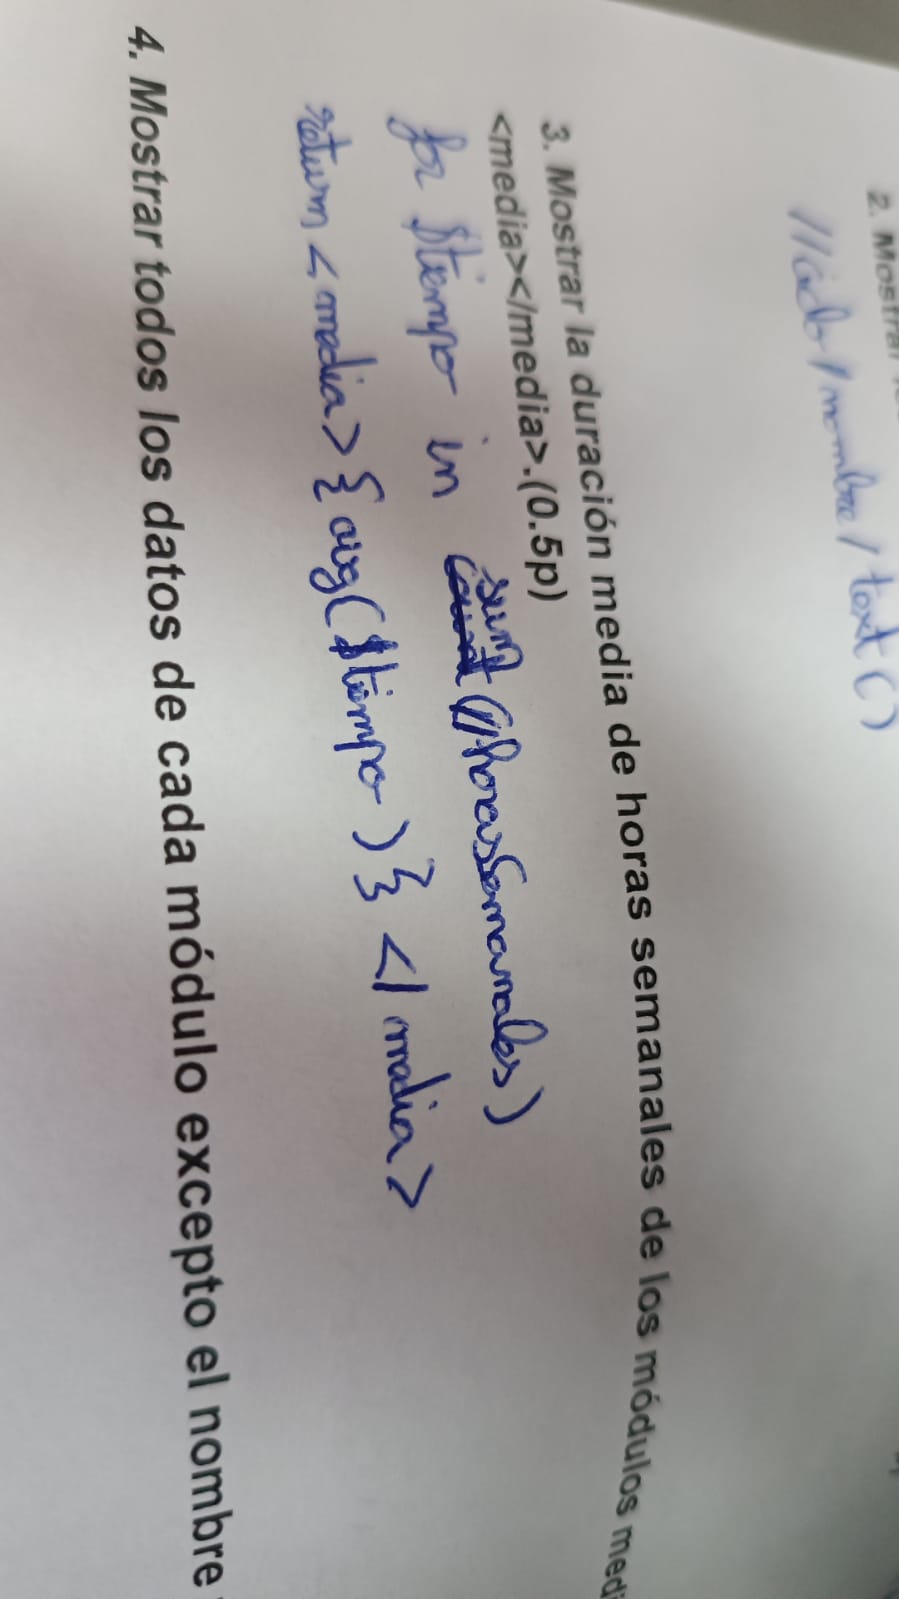 2. Mostrar
//ciclo/nombre/text()
3. Mostrar la duración media de horas semanales de los módulos
<media></media>.(0.5p)
for $tiempo in sum(//horasSemanales)
return <media>{avg($tiempo)}</media>
4. Mostrar todos los datos de cada módulo excepto el nombre